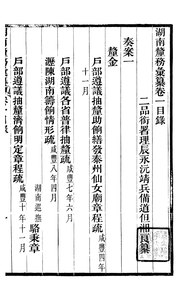 湖南釐務彙纂卷一目錄
二品銜署理辰永沅靖兵備道但湘良纂
奏案一
釐金
戶部遵議抽釐助餉繕發泰州仙女廟章程疏 咸豐四年
十一月
戶部遵議各省普律抽釐疏 咸豐七年六月
瀝陳湖南籌餉情形疏 咸豐八年四月
湖南巡撫 駱秉章
戶部遵議抽釐濟餉明定章程疏 咸豐十年十一月